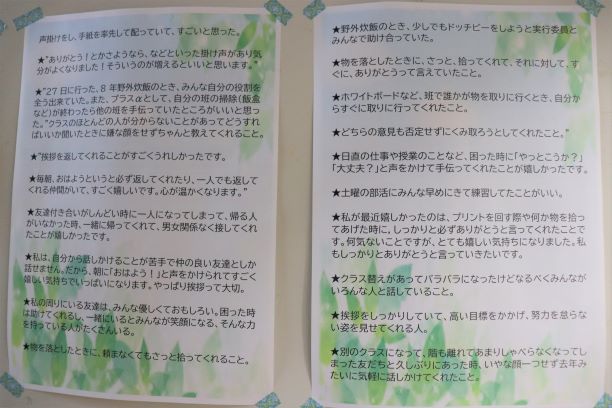 声掛けをし、手紙を率先して配っていて、すごいと思った。
★”ありがとう！とかさようなら、などといった掛け声があり気
分がよくなりました！そういうのが増えるといいと思います。”
★”27 日に行った、8 年野外炊飯のとき、みんな自分の役割を
全う出来ていた。また、プラスαとして、自分の班の掃除（飯盒
など）が終わったら他の班を手伝っていたところがいいと思っ
た。”クラスのほとんどの人が分からないことがあってどうすれ
ばいいか聞いたときに嫌な顔をせずちゃんと教えてくれること。
★”挨拶を返してくれることがすごくうれしかったです。
★毎朝、おはようというと必ず返してくれたり、一人でも返して
くれる仲間がいて、すごく嬉しいです。心が温かくなります。”
★友達付き合いがしんどい時に一人になってしまって、帰る人
がいなかった時、一緒に帰ってくれて、男女関係なく接してくれ
たことが嬉しかったです。
★私は、自分から話しかけることが苦手で仲の良い友達としか
話せません。だから、朝に「おはよう！」と声をかけられてすごく
嬉しい気持ちでいっぱいになります。やっぱり挨拶って大切。
★私の周りにいる友達は、みんな優しくておもしろい。困った時
は助けてくれるし、一緒にいるとみんなが笑顔になる、そんな力
を持っている人がたくさんいる。
★物を落としたときに、頼まなくてもさっと拾ってくれること。
★野外炊飯のとき、少しでもドッチビーをしようと実行委員と
みんなで助け合っていた。
★物を落としたときに、さっと、拾ってくれて、それに対して、す
ぐに、ありがとうって言えていたこと。
★ホワイトボードなど、班で誰かが物を取りに行くとき、自分か
らすぐに取りに行ってくれたこと。
★どちらの意見も否定せずにくみ取ろうとしてくれたこと。”
★日直の仕事や授業のことなど、困った時に「やっとこうか？」
「大丈夫？」と声をかけて手伝ってくれたことが嬉しかったです。
★土曜の部活にみんな早めにきて練習してたことがいい。
★私が最近嬉しかったのは、プリントを回す際や何か物を拾っ
てあげた時に、しっかりと必ずありがとうと言ってくれたことで
す。何気ないことですが、とても嬉しい気持ちになりました。私
もしっかりとありがとうと言っていきたいです。
★クラス替えがあってバラバラになったけどなるべくみんなが
いろんな人と話していること。
★挨拶をしっかりしていて、高い目標をかかげ、努力を怠らな
い姿を見せてくれる人。
★別のクラスになって、階も離れてあまりしゃべらなくなってし
まった友だちと久しぶりにあった時、いやな顔一つせず去年み
たいに気軽に話しかけてくれたこと。